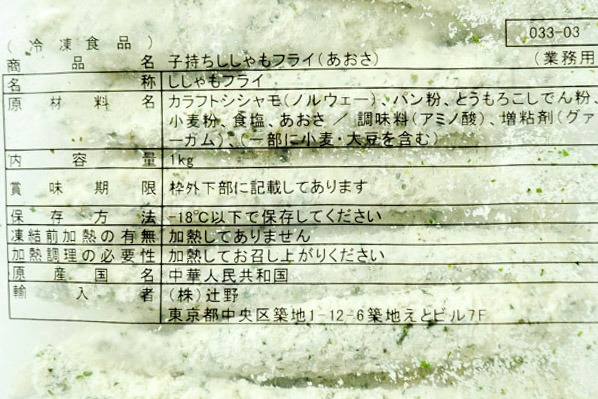 033-03
(冷凍食品)
商品名 子持ちししゃもフライ(あおさ) (業務用
名称 ししゃもフライ
原材料名 カラフトシシャモ(ノルウェー)、パン粉、とうもろこしでん粉、
小麦粉、食塩、あおさ／調味料(アミノ酸)、増粘剤(グァ
ーガム)、(一部に小麦・大豆を含む)
内容量 1kg
賞味期限 枠外下部に記載してあります
保存方法 -18℃以下で保存してください
凍結前加熱の有無 加熱してありません
加熱調理の必要性 加熱してお召し上がりください
原産国名 中華人民共和国
輸入者 (株)辻野
東京都中央区築地1-12-6築地えとビル7F